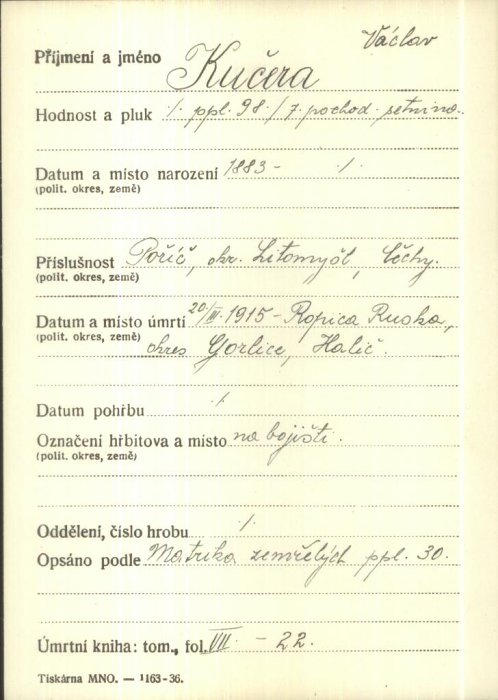 Václav
Příjmení a jméno Kučera
Hodnost a pluk /. ppl. 98./7. pochod. setnina.
Datum a místo narození 1883 - /.
(polit. okres, země)
Příslušnost Poříč, okr. Litomyšl, Čechy.
(polit. okres, země)
Datum a místo úmrtí 20./III. 1915 - Ropica Ruska,
(polit. okres, země) okres Gorlice, Halič.
Datum pohřbu /.
Označení hřbitova a místo na bojišti.
(polit. okres, země)
Oddělení, číslo hrobu /.
Opsáno podle Matrika zemřelých ppl. 30.
Úmrtní kniha: tom., fol. VII - 22.
Tiskárna MNO. — 1163-36.